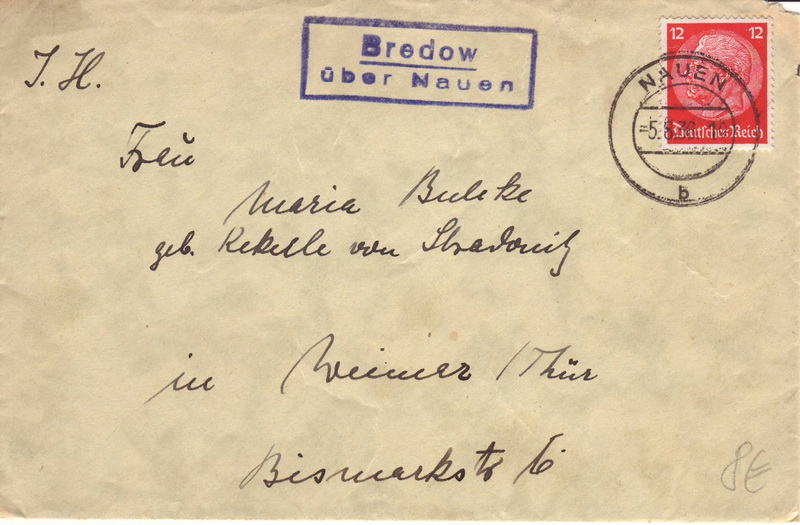 J. H.
Bredow
über Nauen
12 12
Deutsches Reich
NAUEN
b
Frau
Maria Buleke
geb. Kekulle von Stradonitz
in Weimar / Thür
Bismarkstr 6
8€